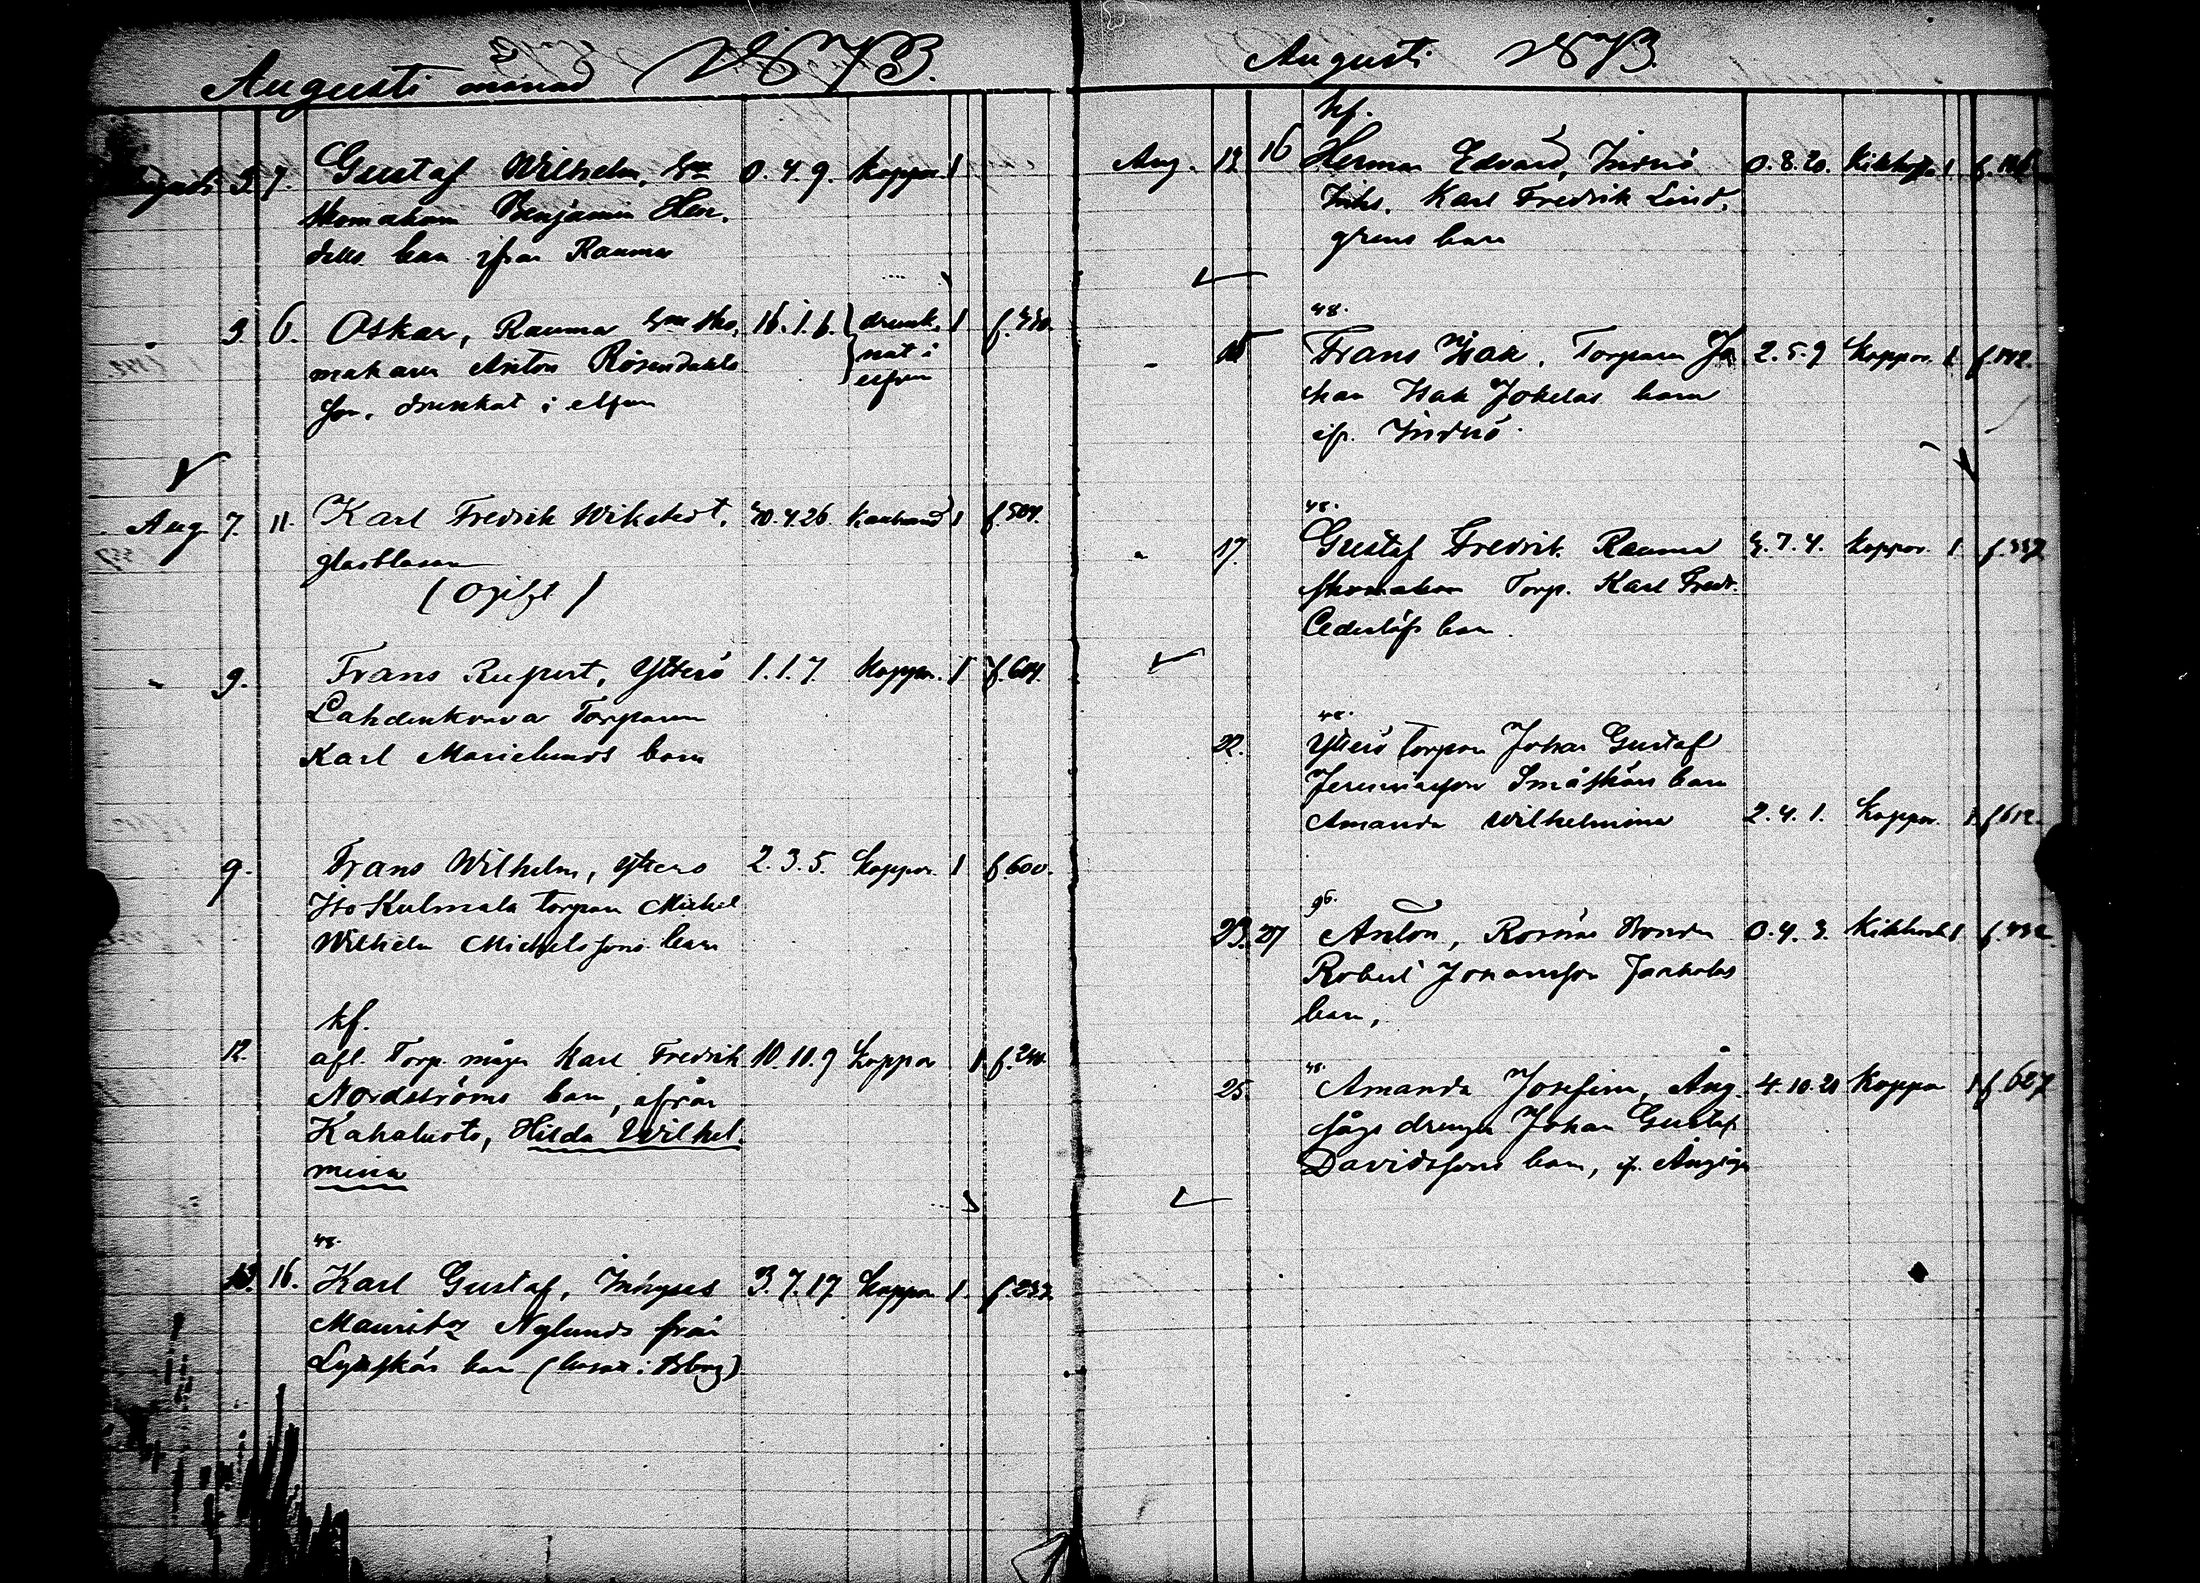 Augusti månad 1873.
Augusti 3 7. Gustaf Wilhelm, 0.4.9. koppor 1
Skomakaren Benjamin Hen-
dells barn ifrån Rauma
3 6. Oskar, Rauma sko- 16.1.6. drunk- 1
makaren Anton Rosendahls nat i
son, drunknat i elfven elfven
Aug 7. 11. Karl Fredrik Wikstedt, 40.4.26. 1 f.504.
glasblasare
(Ogift)
9. Frans Rupert, Ytterö 1.1.7. Koppor. 1 f.604.
Lahdenkrava Torparen
Karl Marielunds barn
9. Frans Wilhelm, Ytterö 2.3.5. koppor. 1 f.600.
Iso Kulmala torparen Michel
Wilhelm Michelssons barn
kf.
12. afl. Torp. mågen Karl Fredrik 10.11.9 koppor 1. f.240.
Nordströms barn, ifrån
Kahaluoto, Hilda Wilhel-
mina
48.
13. 16. Karl Gustaf, Inhyses 3.7.17 koppor 1. f.232.
Mauritz Nylunds från
Lyttskär barn (boson i Bborg)
Augusti 1873.
kf.
Aug. 13 16 Herman Edvard, Inderö 0.8.20. Kikhosta 1.
Inhs. Karl Fredrik Lind-
grens barn
48.
15 Frans Isak, Torparen Jo 2.5.9 koppor. 1. f.142.
han Isak Jokelas barn
ifr. Inderö.
48.
17. Gustaf Fredrik Rauma 3.7.4. koppor. 1. f.337
skomakare Torp. Karl Fredr.
Cederlöfs barn.
48.
22. Ytterö torparen Johan Gustaf
Jeremiasson Småskärs barn
Amanda Wilhelmina 2.4.1. Koppor. 1. f.612.
96.
23. 27 Anton, Rosnäs Bonden 0.4.3. Kikhosta 1 f.432.
Robert Johansson Jaakolas
barn,
48.
25. Amanda Josefina, Ång- 4.10.20 Koppor 1 f.627
sågs drengen Johan Gustaf
Davidssons barn, ifr. Ångsågen